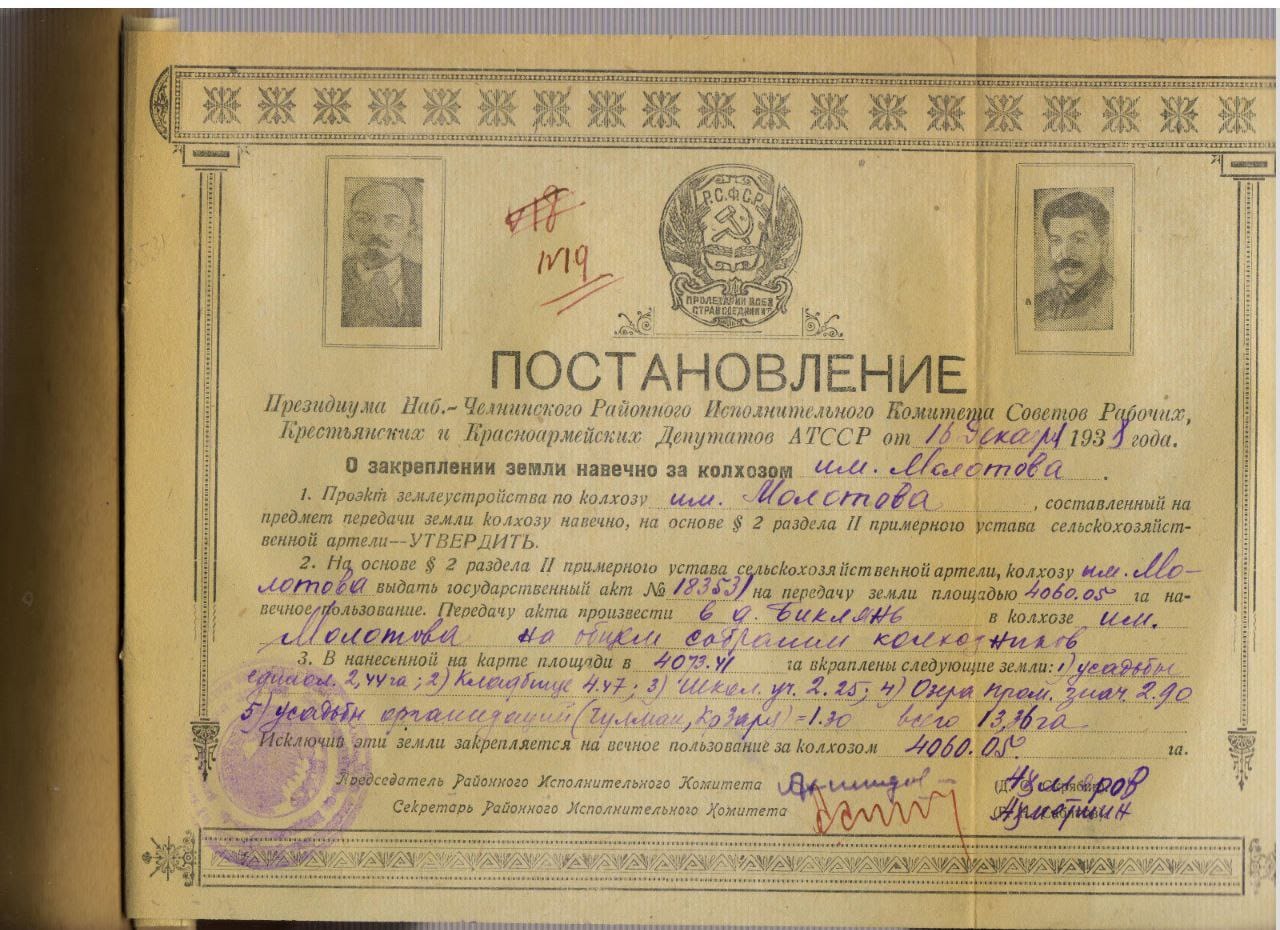 Р.С.Ф.С.Р.
ПРОЛЕТАРИИ ВСЕХ
СТРАН СОЕДИНЯЙТ
18
№19
ПОСТАНОВЛЕНИЕ
Президиума Наб.-Челнинского Районного Исполнительного Комитета Советов Рабочих,
Крестьянских и Красноармейских Депутатов АТССР от 16 Декабря 1938 года.
О закреплении земли навечно за колхозом им. Молотова.
1. Проэкт землеустройства по колхозу им. Молотова, составленный на
предмет передачи земли колхозу навечно, на основе § 2 раздела II примерного устава сельскохозяйст-
венной артели—УТВЕРДИТЬ.
2. На основе § 2 раздела II примерного устава сельскохозяйственной артели, колхозу им. Мо-
лотова выдать государственный акт № 183531 на передачу земли площадью 4060.05 га на-
вечное пользование. Передачу акта произвести в д. Биклянь в колхозе им.
Молотова на общем собрании колхозников
3. В нанесенной на карте площади в 4073.41 га вкраплены следующие земли: 1) усадьбы
единол. 2,44 га; 2) Кладбище 4.47; 3) Школ. уч. 2.25; 4) Озера пром. знач. 2.90
5) усадьбы организаций (Чулман, = 1.30 всего 13,36 га
Исключив эти земли закрепляется на вечное пользование за колхозом 4060.05 га.
Председатель Районного Исполнительного Комитета
Секретарь Районного Исполнительного Комитета